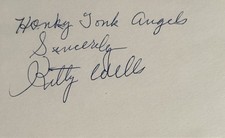 Honky Tonk Angels
Sincerely
Kitty Wells